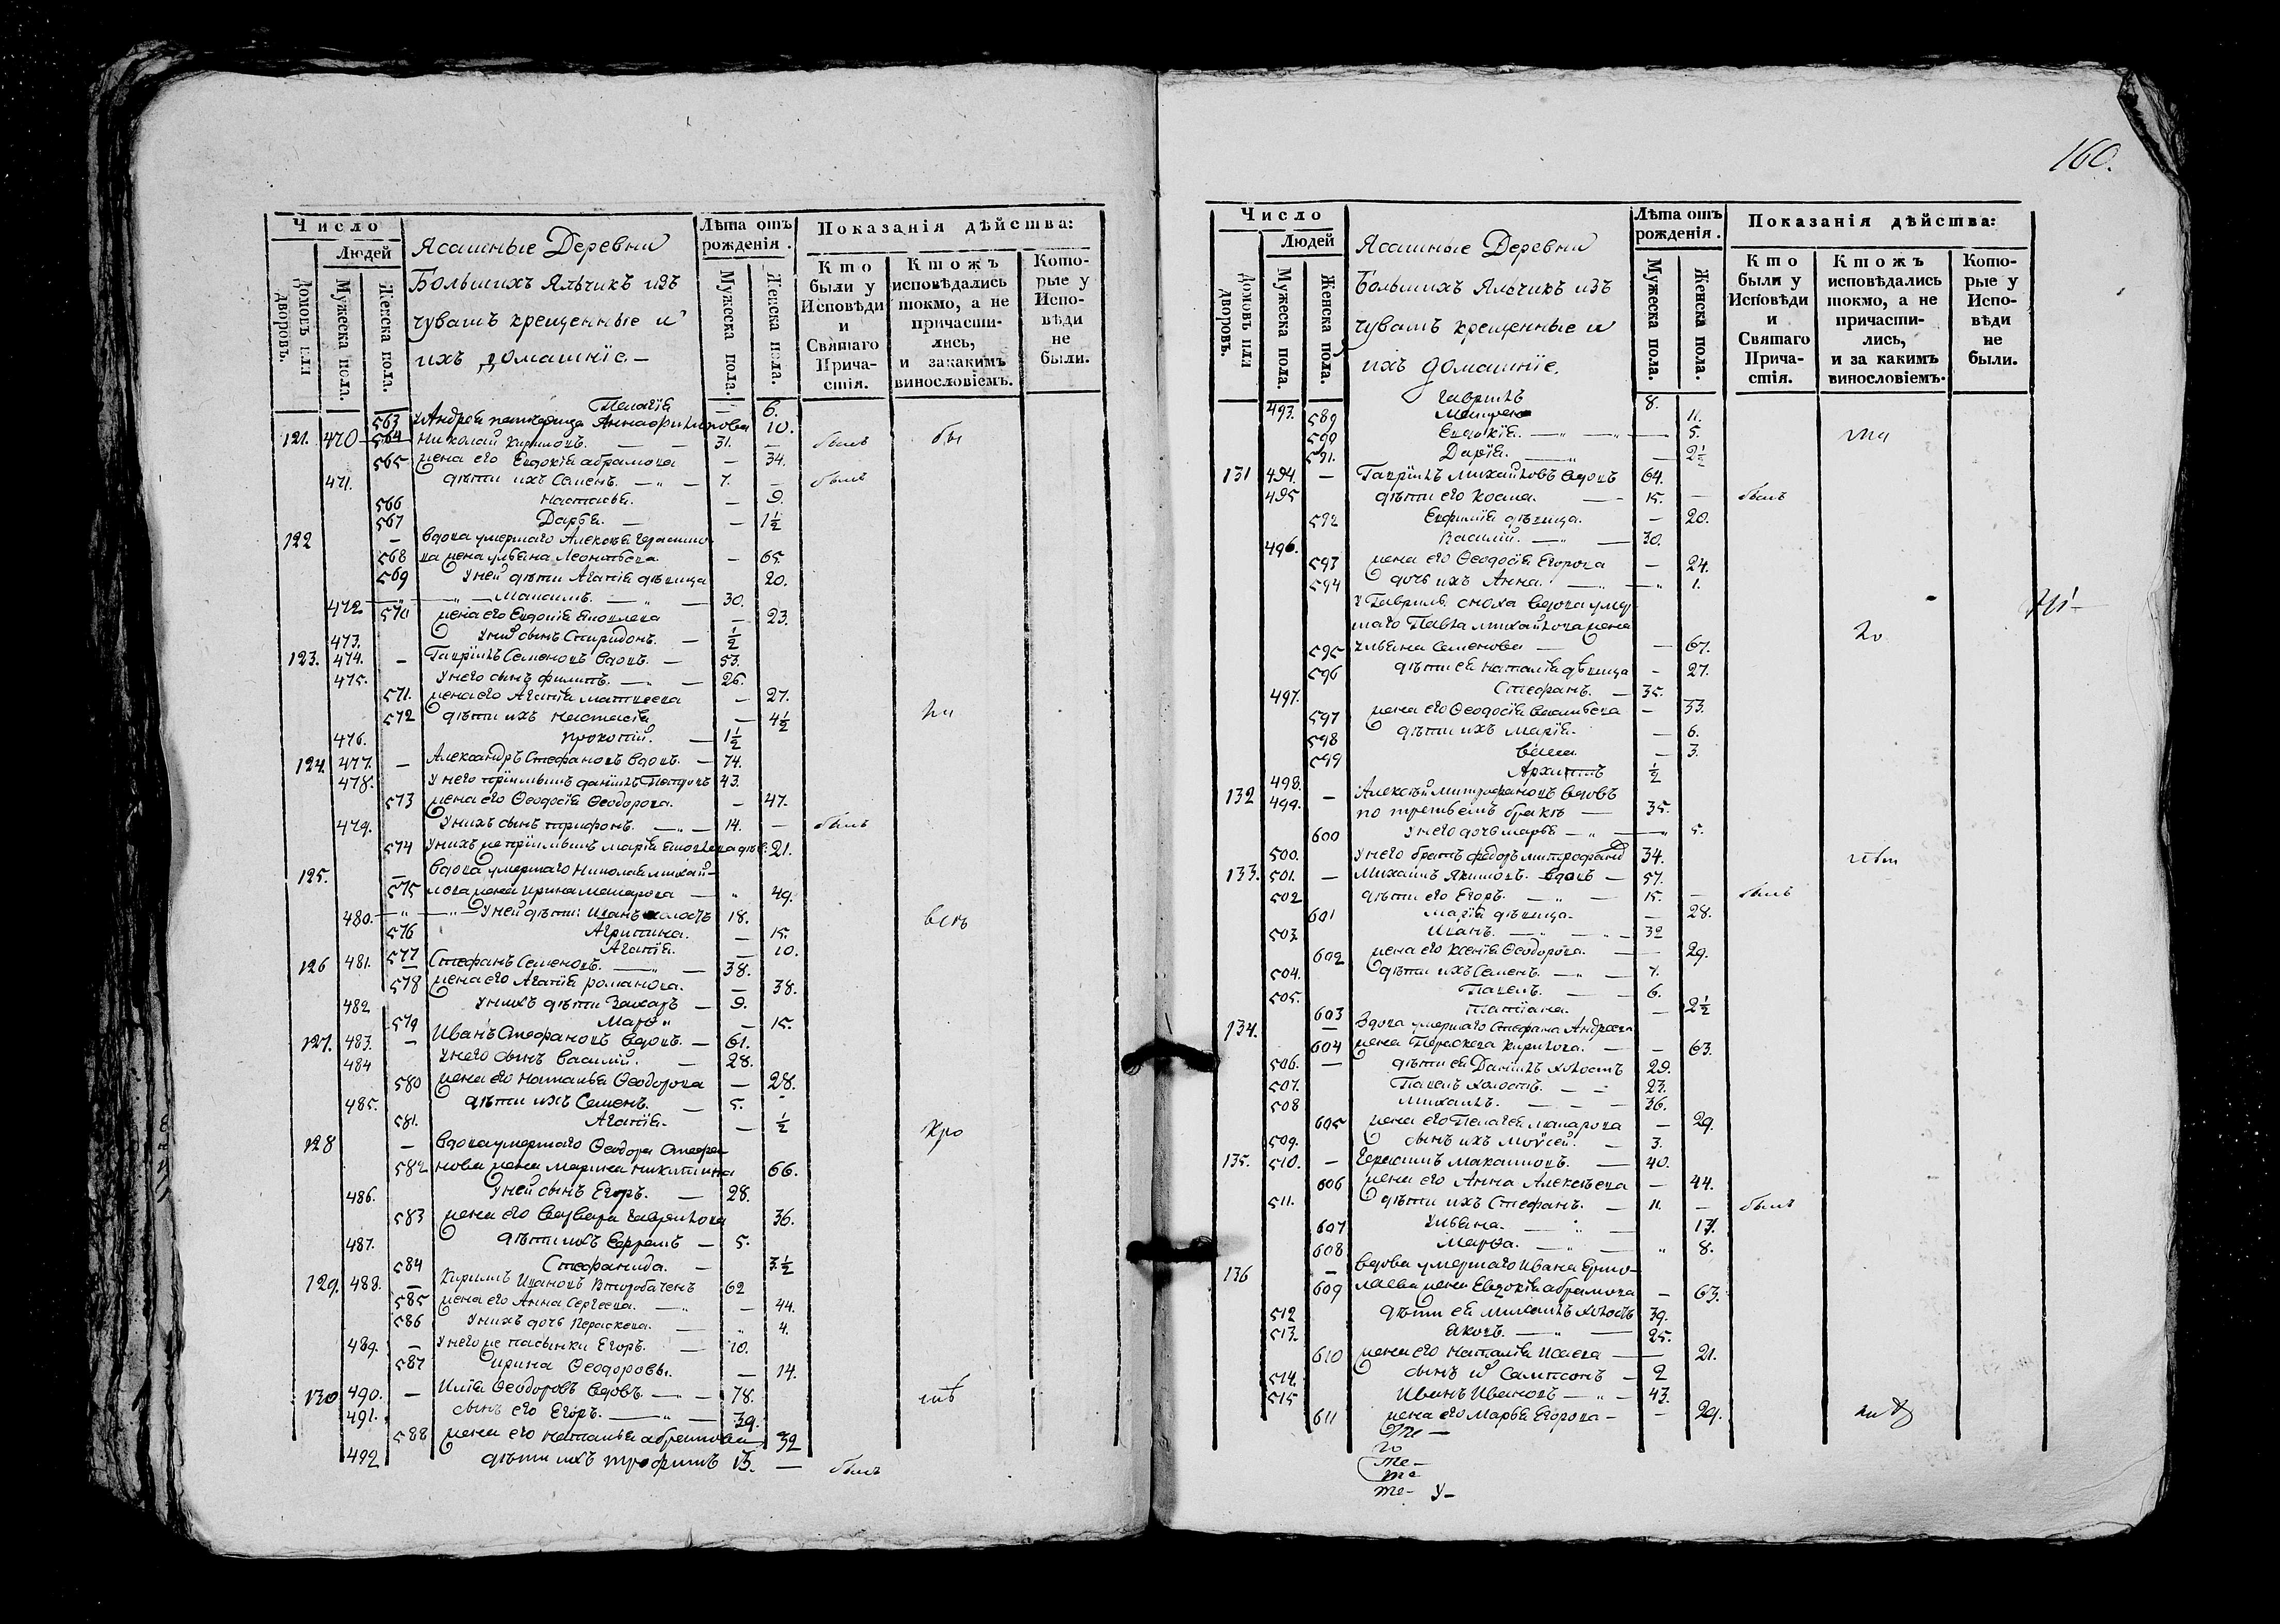 160.
Число
Людей
Домовъ или дворовъ.
Мужеска пола.
Женска пола.
Ясашные Деревни
Большихъ Яльчикъ изъ
чувашъ крещенные и
ихъ домашніе. —
Лѣта отъ рожденія.
Мужеска пола.
Женска пола.
Показанія дѣйства:
Кто были у Исповѣди и Святаго Прича-стія.
Ктожъ исповѣдались токмо, а не причасти-лись, и закакимъ винословіемъ.
Кото-рые у Испо-вѣди не были.
Пелагія — 6.
563 У Андрея Анна Филипова 10.
121. 470 564 Николай Кириловъ. 31. — былъ
565 жена его Евдокія Абрамова — 34.
471. дѣти ихъ Семенъ. 7. — былъ
566 Настасья. — 9.
567 Дарья. — 1½
122 — Вдова умершаго Алексѣя Герасимо-
568 ва жена Ульяна Леонтьева — 65.
569 У ней дѣти Агапія дѣвица 20.
472 Максимъ. 30.
570 жена его Евдокія Яковлева — 23.
473. у нихъ сынъ Спиридонъ. ½
123. 474. — Гаврилъ Семеновъ вдовъ. — 53.
475. У него сынъ Филипъ. — 26.
571. жена его Агапія Матвеева — 27.
572 дѣти ихъ Настасія — 4½
476. Прокопій. — 1½
124. 477. — Александръ Стефановъ вдовъ. — 74.
478. У него пріимышъ Данилъ Петровъ 43.
573 жена его Ѳеодосія Ѳеодорова. — 47.
479. У нихъ сынъ Трифонъ. — 14. — былъ
574 У нихъ же пріимышъ Марія Яковлева 21.
125. — Вдова умершаго Николая Михай-
575 лова жена Ирина Макарова — 49.
480. У ней дѣти: Иванъ холостъ 18.
576 Агрипина. — 15.
577 Агапія. — 10.
126 481. — Стефанъ Семеновъ. 38.
578 жена его Агапія Романова. — 38.
482 У нихъ дѣти Захаръ — 9.
579 Марѳа — 15.
127. 483. — Иванъ Стефановъ вдовъ. — 61.
484 У него сынъ Василій. — 28.
580 жена его Наталья Ѳеодорова — 28.
485. дѣти ихъ Семенъ. — 5.
581. Агапія. — ½
128 — Вдова умершаго Ѳеодора Стефа-
582 нова жена Марина Никитина 66.
486. У ней сынъ Егоръ. — 28.
583 жена его Варвара Гаврилова 36.
487. дѣти ихъ Ефремъ — 5.
584 Стефанида. — 3½
129. 488. — Кирилъ Ивановъ Второбаченъ 62
585 жена его Анна Сергеева. — 44.
586 У нихъ дочь Параскева. — 4.
489. — У него же пасынки Егоръ. — 10.
587 Ирина Ѳеодоровы. — 14.
130 490. — Илія Ѳеодоровъ вдовъ. — 78.
491. сынъ его Егоръ. — 39.
588 жена его Наталья Абрамова 32
492 дѣти ихъ Трофимъ 13. — былъ
Число
Людей
Домовъ или дворовъ.
Мужеска пола.
Женска пола.
Ясашные Деревни
Большихъ Яльчикъ изъ
чувашъ крещенные и
ихъ домашніе.
Лѣта отъ рожденія.
Мужеска пола.
Женска пола.
Показанія дѣйства:
Кто были у Исповѣди и Святаго Прича-стія.
Ктожъ исповѣдались токмо, а не причасти-лись, и за какимъ винословіемъ.
Кото-рые у Испо-вѣди не были.
493. Гаврилъ 8.
589 Матрена 11.
590 Евдокія. — 5.
591. Дарія. 2½
131 494. — Гаврилъ Михайловъ вдовъ 64.
495 дѣти его Косма. 15. — былъ
592 Евфимія дѣвица. — 20.
496. Василій. — 30.
593 жена его Ѳеодосія Егорова — 24.
594 дочь ихъ Анна. — 1.
У Гаврилы сноха вдова умер
шаго Павла Михайлова жена
595 Ульяна Семенова — 67.
596 дѣти ея Наталія дѣвица — 27.
497. Стефанъ. — 35.
597 жена его Ѳеодосія Васильева — 33.
598 дѣти ихъ Марія. — 6.
599 — 3.
498. Архипъ ½
132 499. — Алексѣй Митрофановъ вдовъ
по третьемъ бракѣ — 35.
600 У него дочь Марья — 5.
500. У него братъ Федоръ Митрофанов 34.
133. 501. — Михаилъ Якимовъ. вдовъ — 57.
502 дѣти его Егоръ. — 15. — былъ
601 Марія дѣвица. — 28.
503 Иванъ. — 32
602 жена его Ксенія Ѳеодорова. — 29.
504. дѣти ихъ Семенъ. — 7.
505. Павелъ. — 6.
603 Татіана. — 2½
134. — Вдова умершаго Стефана Андреева
604 жена Параскева Кирилова. — 63.
506. — дѣти ея Данилъ холостъ 29.
507. Павелъ холостъ. — 23.
508 Михаилъ. — 36.
605 жена его Пелагея Макарова — 29.
509. сынъ ихъ Моисей. — 3.
135. 510. — Герасимъ Максимовъ. — 40.
606 жена его Анна Алексѣева — 44.
511. дѣти ихъ Стефанъ. — 11. — былъ
607 Ульяна. — 17.
608 Марѳа. — 8.
136 — Вдова умершаго Ивана Ермо-
609 лаева жена Евдокія Абрамова — 63.
512 дѣти ея Михаилъ холостъ 39.
513. Яковъ. — 25.
610 жена его Наталія Исаева — 21.
514. сынъ и Сампсонъ — 2
515 Иванъ Ивановъ — 43.
611 жена его Марья Егорова — 29.